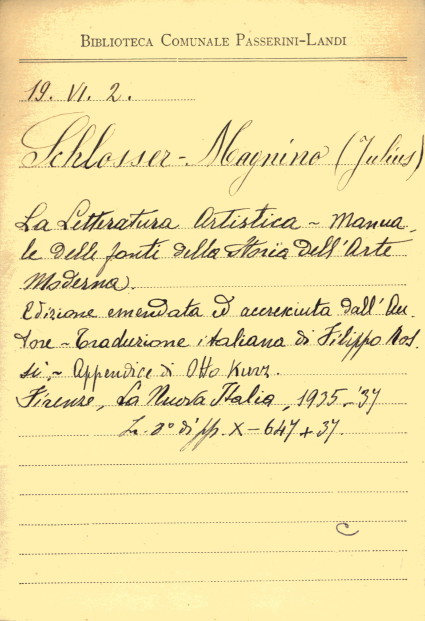 BIBLIOTECA COMUNALE PASSERINI-LANDI
19. VI. 2.
Schlosser-Magnino (Julius)
La Letteratura Artistica - Manua-
le delle fonti della Storia dell'Arte
Moderna.
Edizione emendata ed accresciuta dall'Au-
tore - Traduzione italiana di Filippo Ros-
si, - Appendice di Otto Kurz.
Firenze, La Nuova Italia, 1935-'37
In 8° di pp. X - 647 + 37.
C